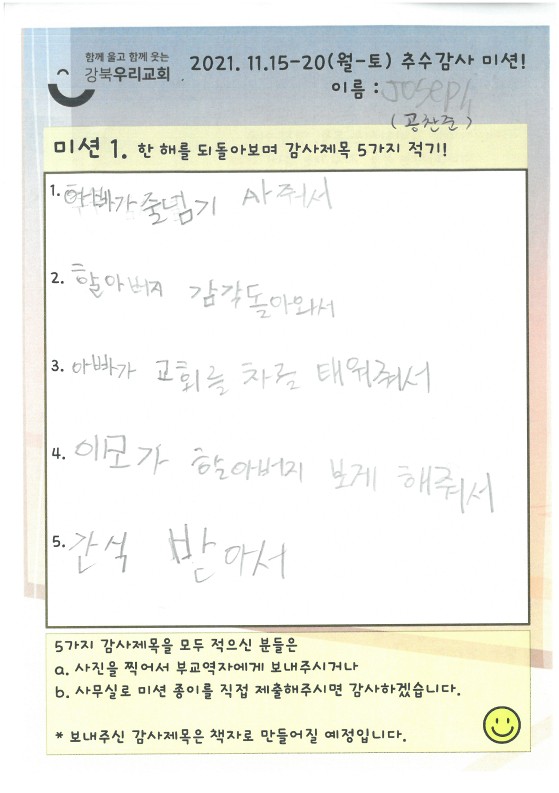 함께 울고 함께 웃는
강북우리교회
2021. 11.15-20(월-토) 추수감사 미션!
이름 : Joseph
(공찬준)
미션 1. 한 해를 되돌아보며 감사제목 5가지 적기!
1. 아빠가 줄넘기 사줘서
2. 할아버지 감각돌아와서
3. 아빠가 교회를 차로 태워줘서
4. 이모가 할아버지 보게 해줘서
5. 간식 받아서
5가지 감사제목을 모두 적으신 분들은
a. 사진을 찍어서 부교역자에게 보내주시거나
b. 사무실로 미션 종이를 직접 제출해주시면 감사하겠습니다.
* 보내주신 감사제목은 책자로 만들어질 예정입니다.